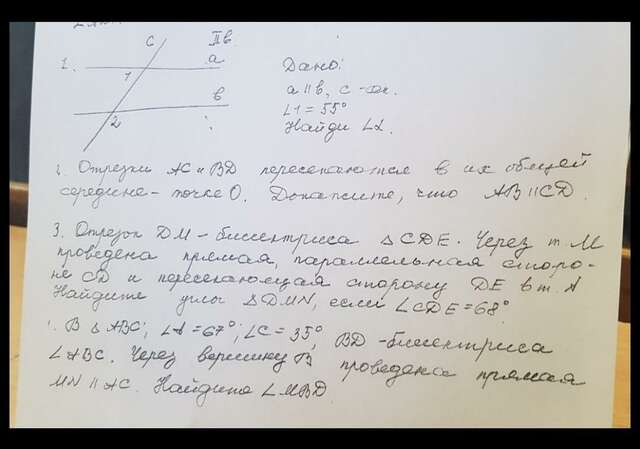 c IIв.
1. a
1
b
2
Дано:
a || b, c - сек.
∠1 = 55°
Найди ∠2.
2. Отрезки AC и BD пересекаются в их общей
середине - точке O. Докажите, что AB || CD.
3. Отрезок DM - биссектриса △CDE. Через т. M
проведена прямая, параллельная сторо-
не CD и пересекающая сторону DE в т. N
Найдите углы △DMN, если ∠CDE = 68°
. В △ABC; ∠A = 67°; ∠C = 35°, BD - биссектриса
∠ABC. Через вершину B проведена прямая
MN || AC. Найдите ∠MBD.